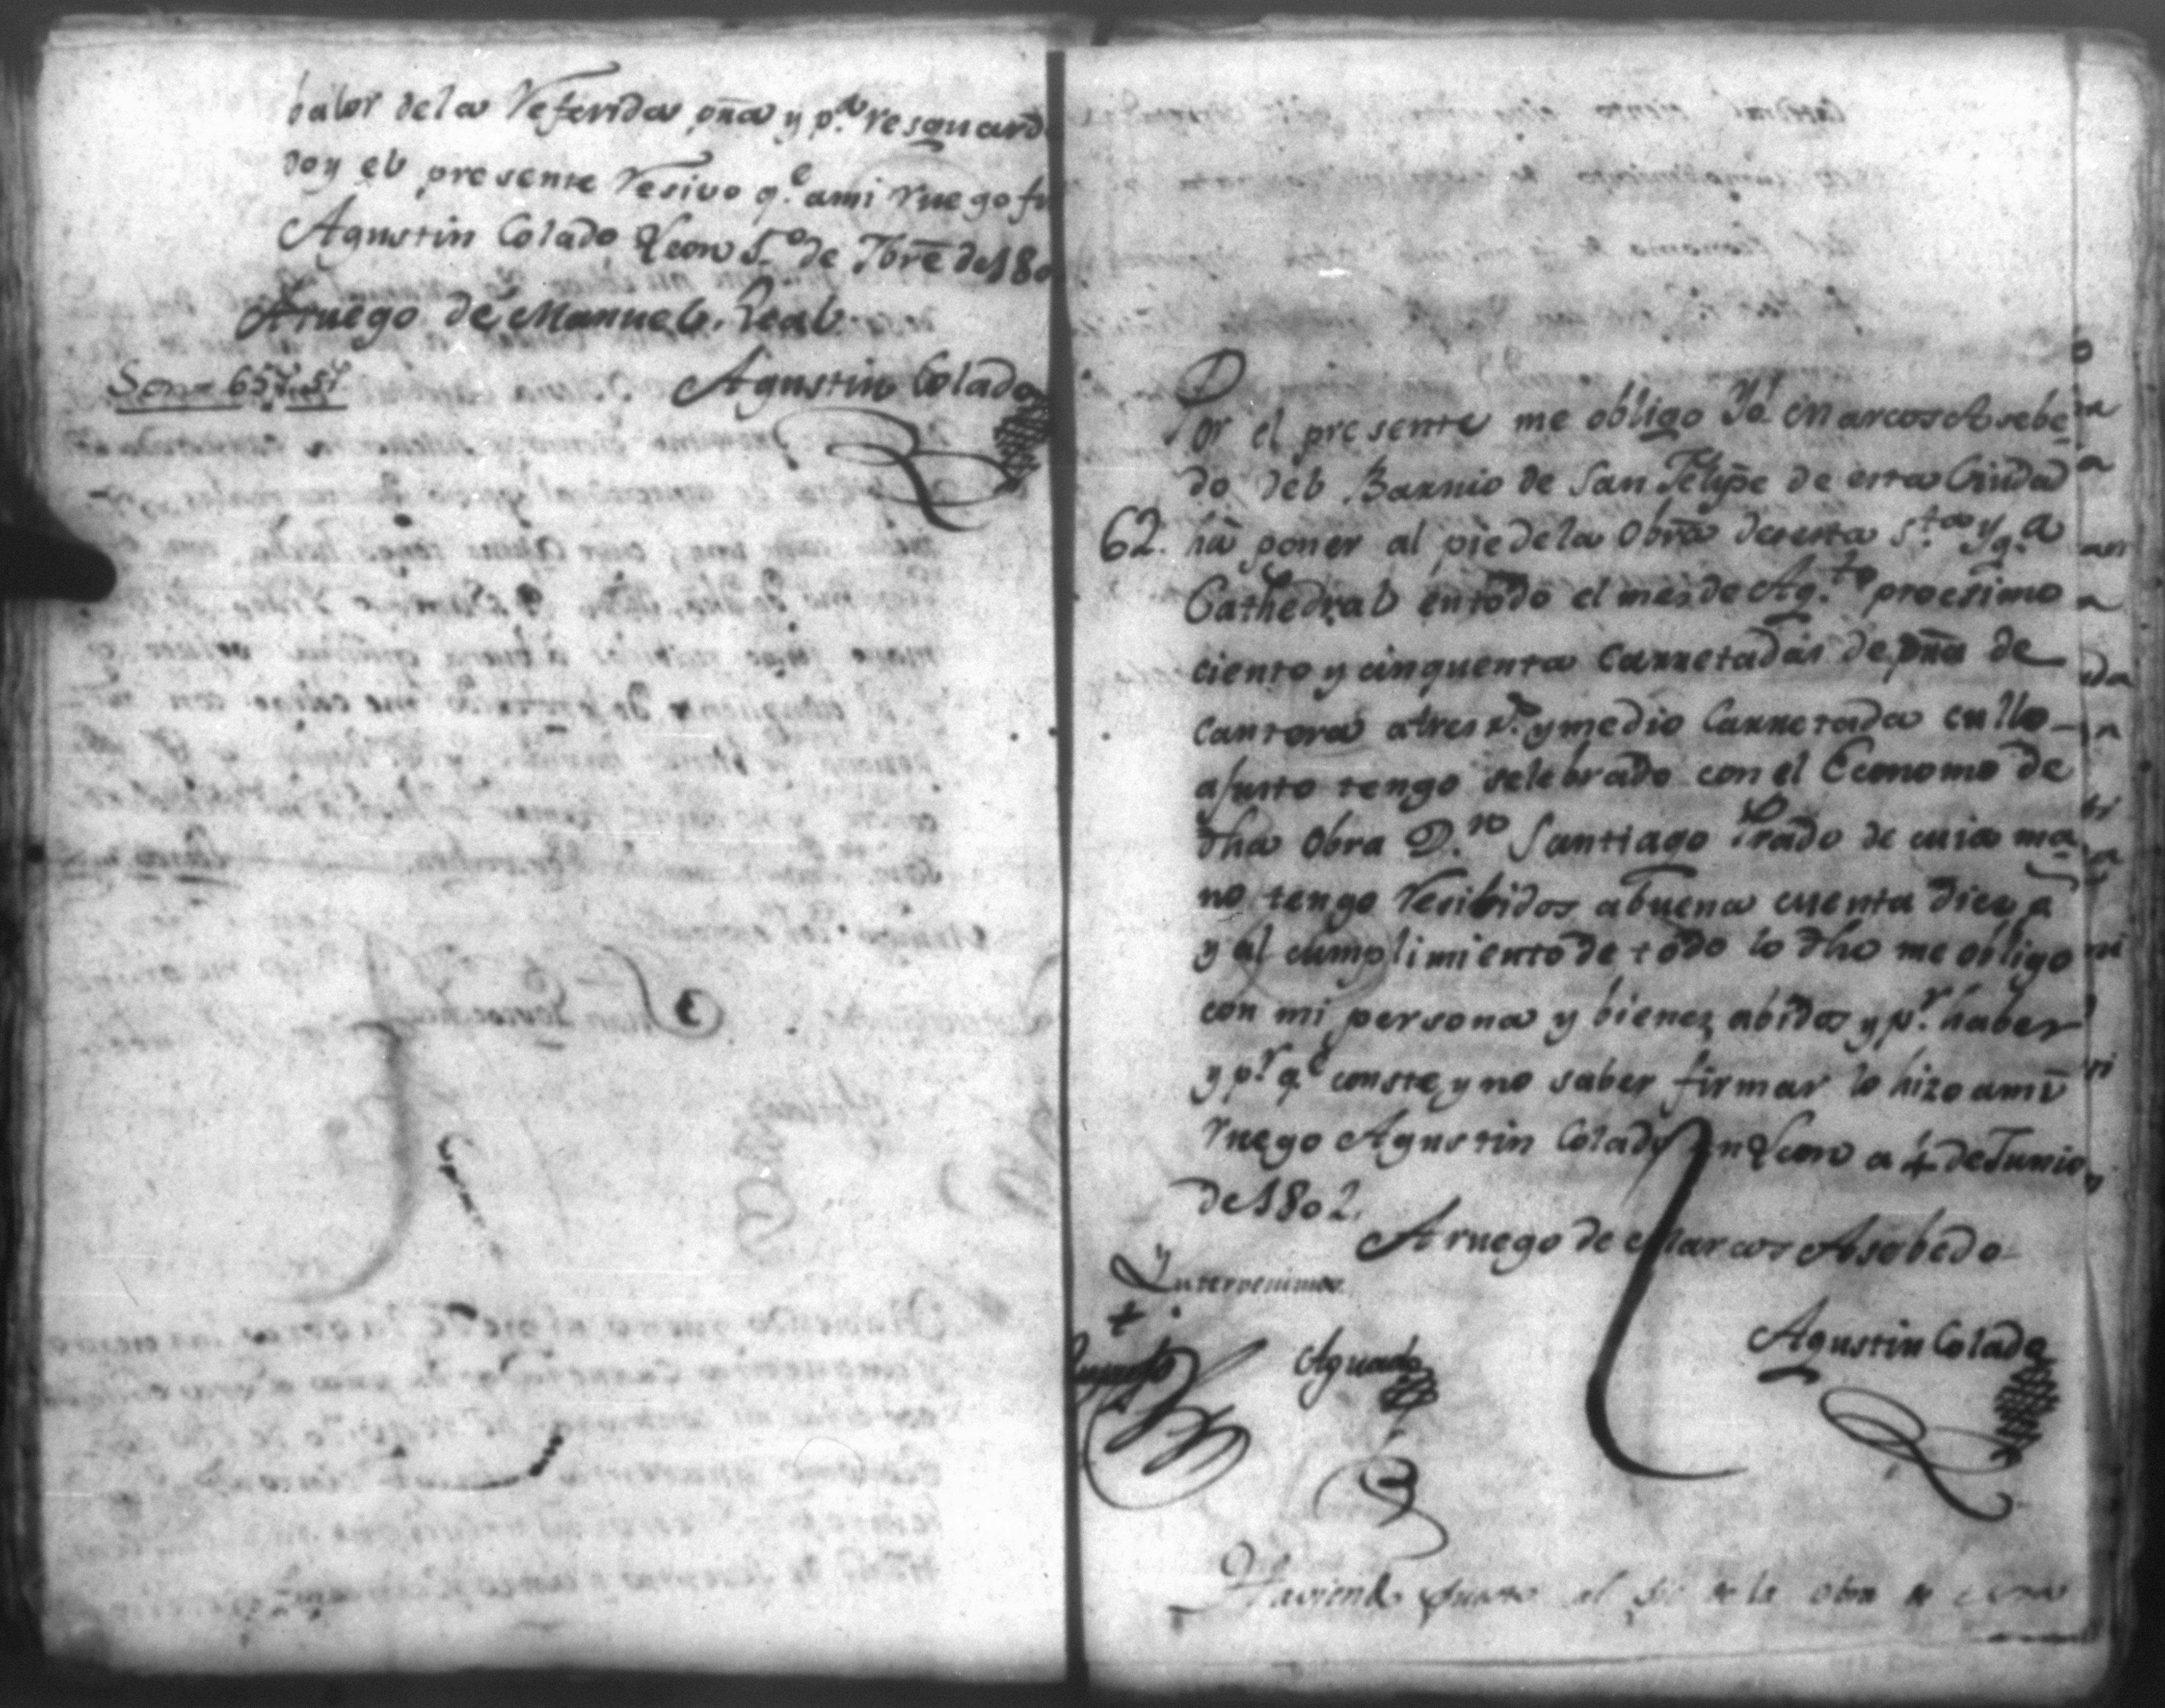 balor dela Referida pña y p.ª resguard
doy el presente Resivo q.e ami Ruego fir
Agustin Colado Leon 5.º de 7bre de 180
A ruego de Manuel Leal
Agustin Colado
Son 65 p.s 5 r.s
Por el presente me obligo Yo Marcos Asebe
do del Barrio de San Felipe de esta Ciudad
62. ha poner al pie dela Obra de esta S.ta Yg.ª
Cathedral en todo el mes de Ag.to proesimo
ciento y cinquenta Carretadas de pña de
cantera a tres r.s y medio Carretada cullo
ajusto tengo selebrado con el Economo de
dha Obra D.n Santiago Prado de cuia ma
no tengo Resibidos a buena cuenta diez p
y al cumplimiento de todo lo dho me obligo
con mi persona y bienes abidos y p.r haber
y p.r q.e conste y no saber firmar lo hizo ami
Ruego Agustin Colado en Leon a 4 de Junio
de 1802.
A ruego de Marcos Asebedo
Yntervenimos
Aguado
Agustin Colado
Haviendo puesto al pie de la Obra de esta